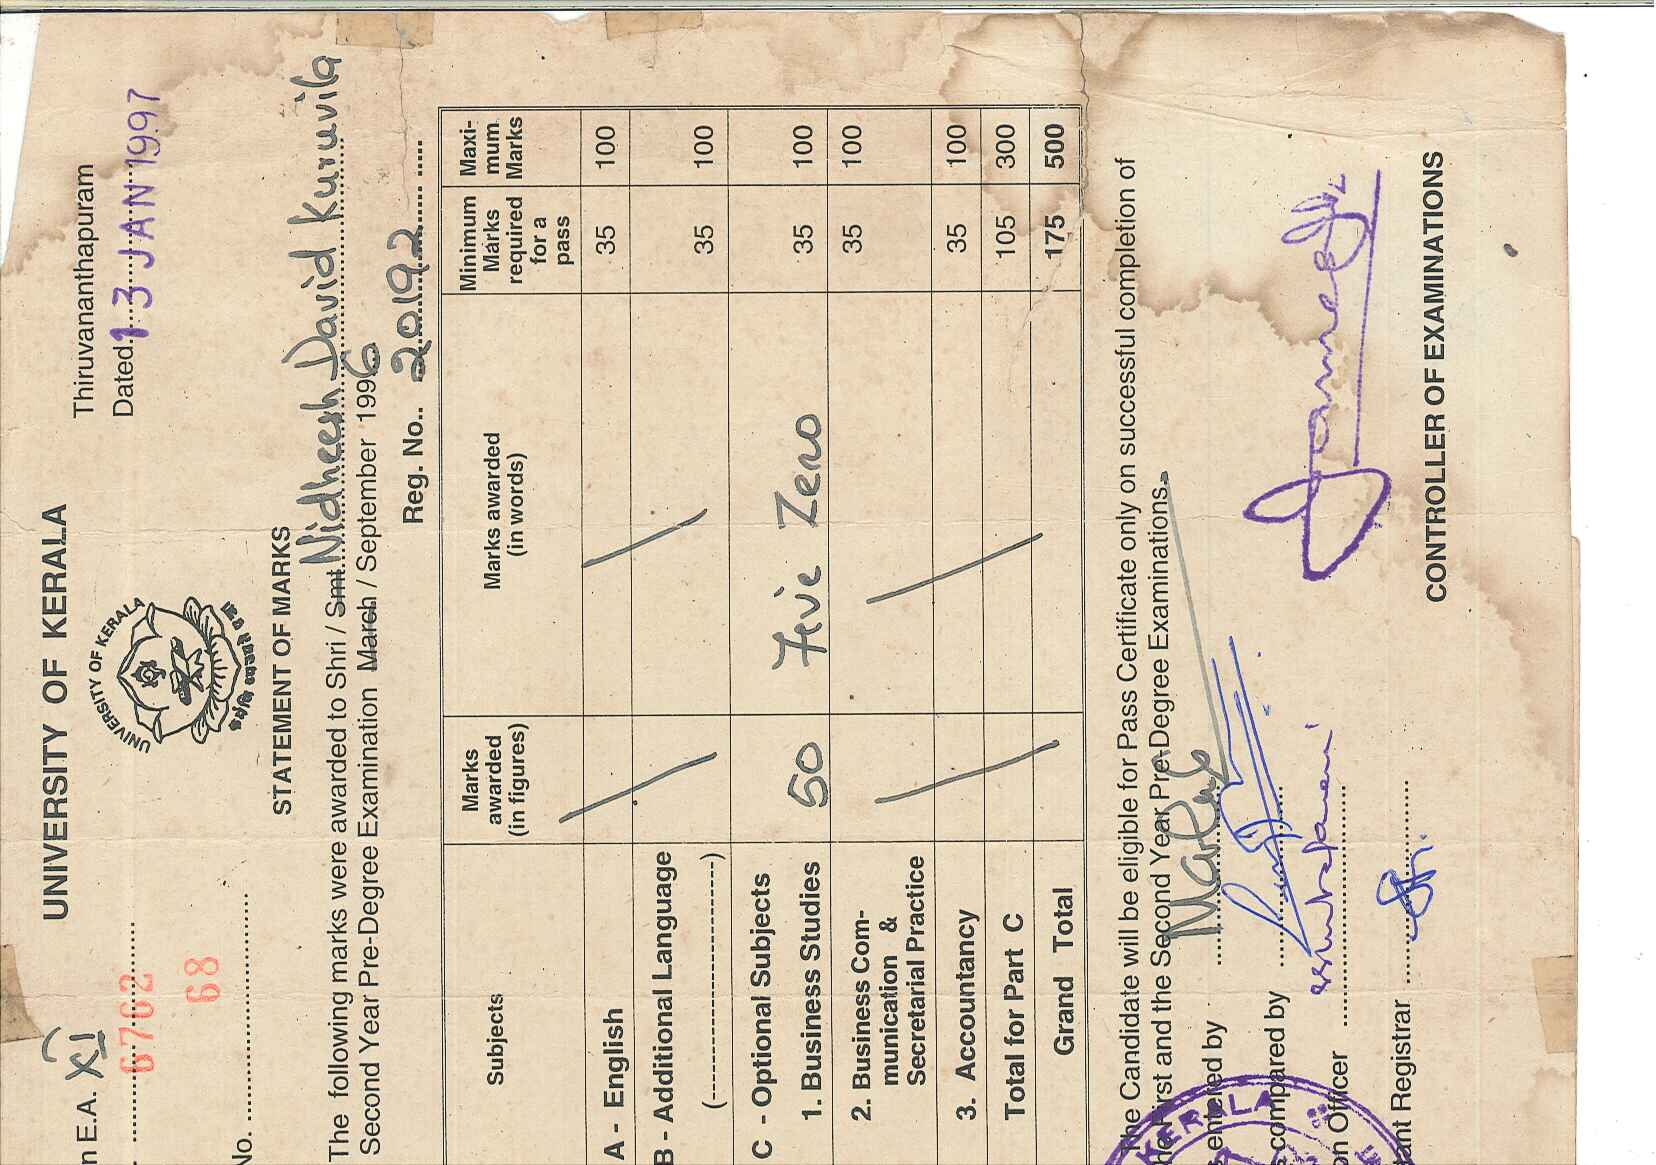 UNIVERSITY OF KERALA
n E.A. XI
67762
68
No.
UNIVERSITY OF KERALA
Thiruvananthapuram
Dated 13 JAN 1997
STATEMENT OF MARKS
The following marks were awarded to Shri / Smt. Nidheesh David Kuruvila
Second Year Pre-Degree Examination March / September 1996
Reg. No. 20192
Subjects | Marks awarded (in figures) | Marks awarded (in words) | Minimum Marks required for a pass | Maxi-mum Marks
A - English 35 100
B - Additional Language 35 100
(--------------------)
C - Optional Subjects
1. Business Studies 50 Five Zero 35 100
2. Business Com- 35 100
munication &
Secretarial Practice
3. Accountancy 35 100
Total for Part C 105 300
Grand Total 175 500
The Candidate will be eligible for Pass Certificate only on successful completion of
the First and the Second Year Pre-Degree Examinations.
entered by
compared by
on Officer
tant Registrar
KERALA
CONTROLLER OF EXAMINATIONS